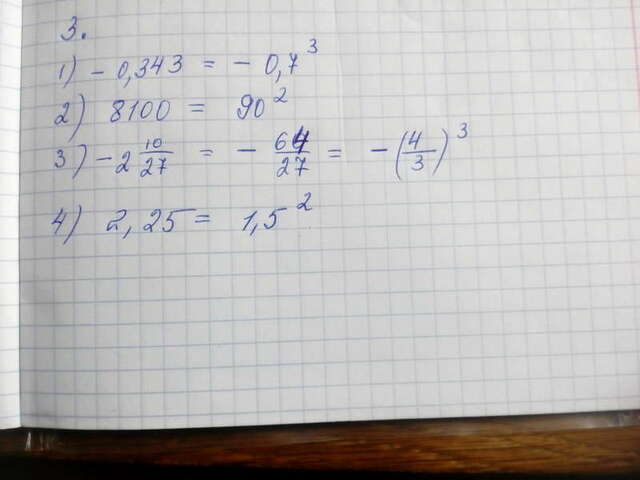 3.
1) - 0,343 = - 0,7³
2) 8100 = 90²
3) - 2 10/27 = - 64/27 = - (4/3)³
4) 2,25 = 1,5²